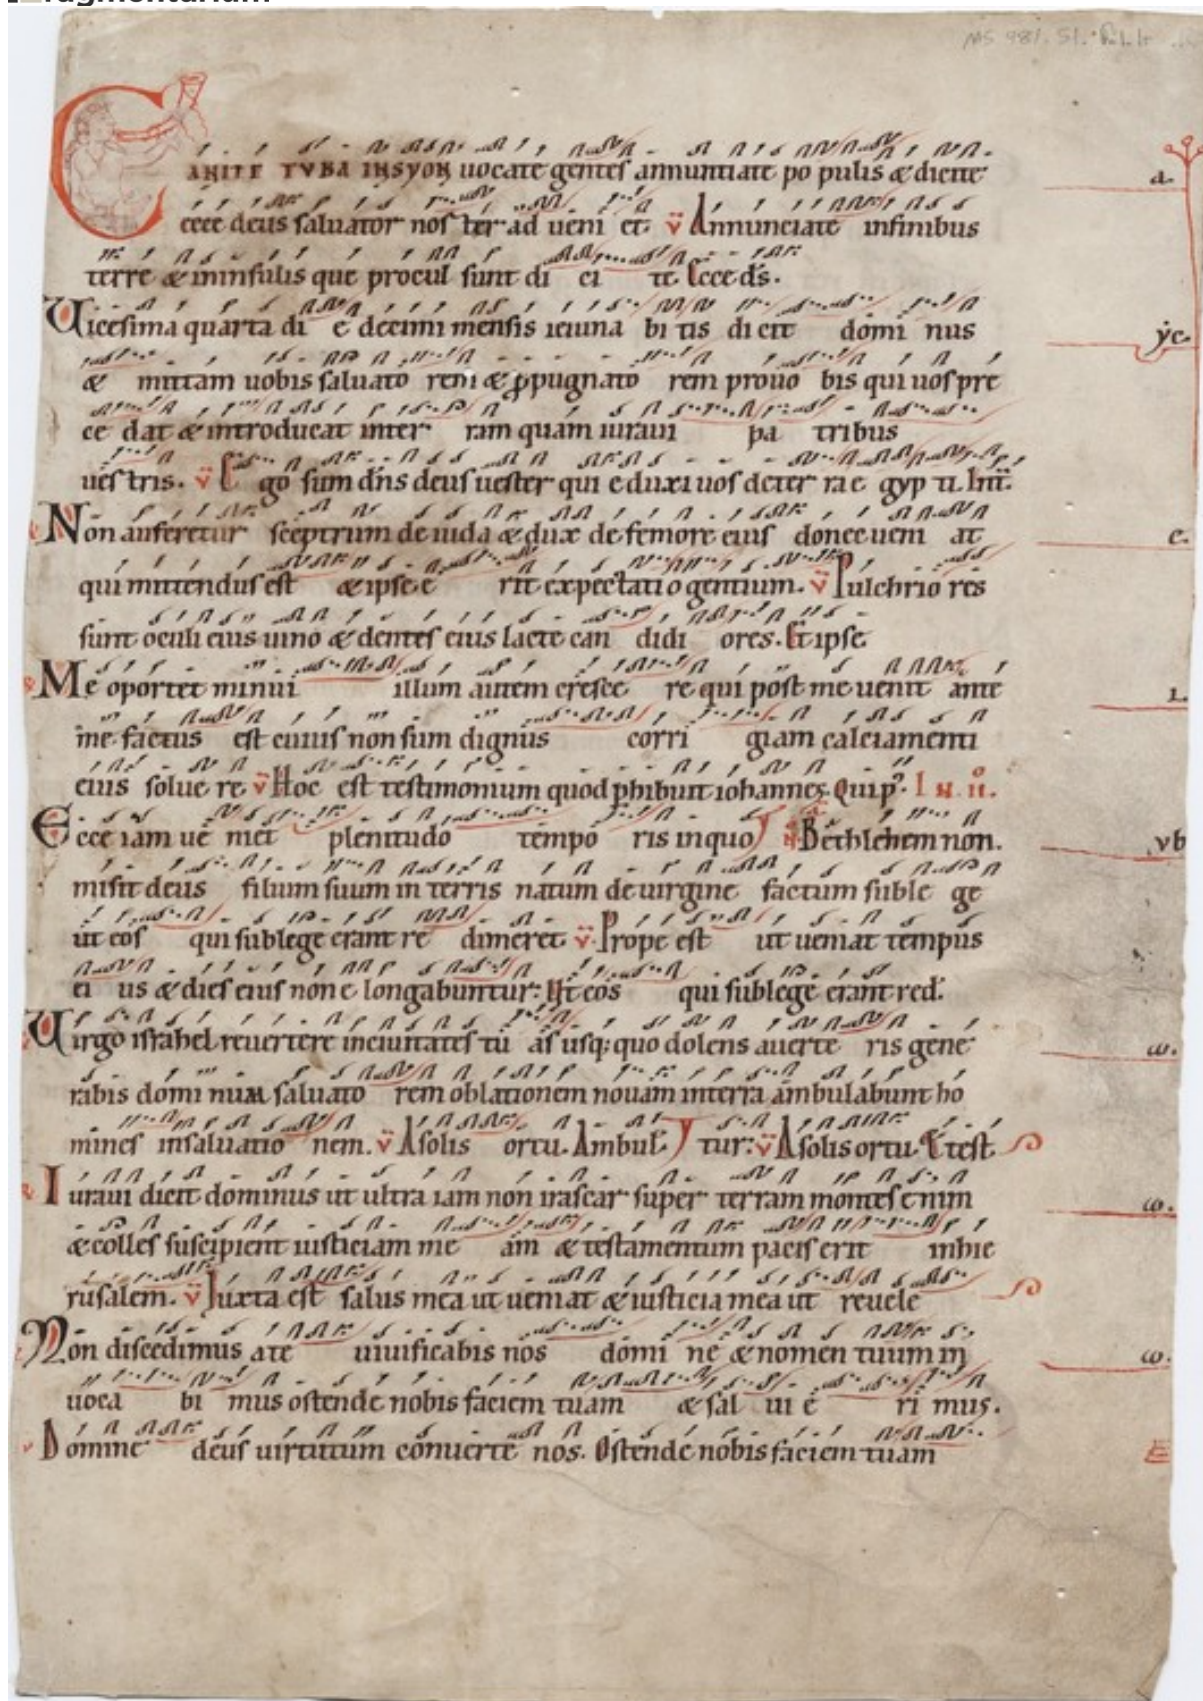 CANITE TVBA INSYON uocate gentes annuntiate po pulis & dicite
ecce deus saluator nos ter ad ueni et. v Annunciate infinibus
terre & ininsulis que procul sunt di ci te Ecce ds.
Uicesima quarta di e decimi mensis ieiuna bi tis dicit domi nus
& mittam uobis saluato rem & ppugnato rem prouo bis qui uos pre
ce dat & introducat inter ram quam iuraui pa tribus
ues tris. v Ego sum dns deus uester qui eduxi uos deter ra e gyp ti.
Non auferetur sceptrum de iuda & dux de femore eius donec ueni at
qui mittendus est & ipse e rit expectati o gentium. v Pulchrio res
sunt oculi eius uino & dentes eius lacte can didi ores. Et ipse
Me oportet minui illum autem cresce re qui post me uenit ante
me factus est cuius non sum dignus corri giam calciamenti
eius solue re v Hoc est testimonium quod phibuit iohannes. Qui p. I N II.
Ecce iam ue niet plenitudo tempo ris inquo Bethlehem non.
misit deus filium suum in terris natum de uirgine factum suble ge
ut eos qui sublege erant re dimeret v. Prope est ut ueniat tempus
ei us & dies eius non e longabuntur: Ut eos qui sublege erant red.
Uirgo israhel reuertere inciuitates tu as usq: quo dolens auerte ris gene
rabis domi num saluato rem oblationem nouam interra ambulabunt ho
mines insaluatio nem. v Asolis ortu. Ambul tur: v Asolis ortu. Et est
Iuraui dicit dominus ut ultra iam non irascar super terram montes enim
& colles suscipient iusticiam me am & testamentum pacis erit inhie
rusalem. v Iuxta est salus mea ut ueniat & iusticia mea ut reuele
Non discedimus ate uiuificabis nos domi ne & nomen tuum in
uoca bi mus ostende nobis faciem tuam & sal ui e ri mus.
v Domine deus uirtutum conuerte nos. Ostende nobis faciem tuam